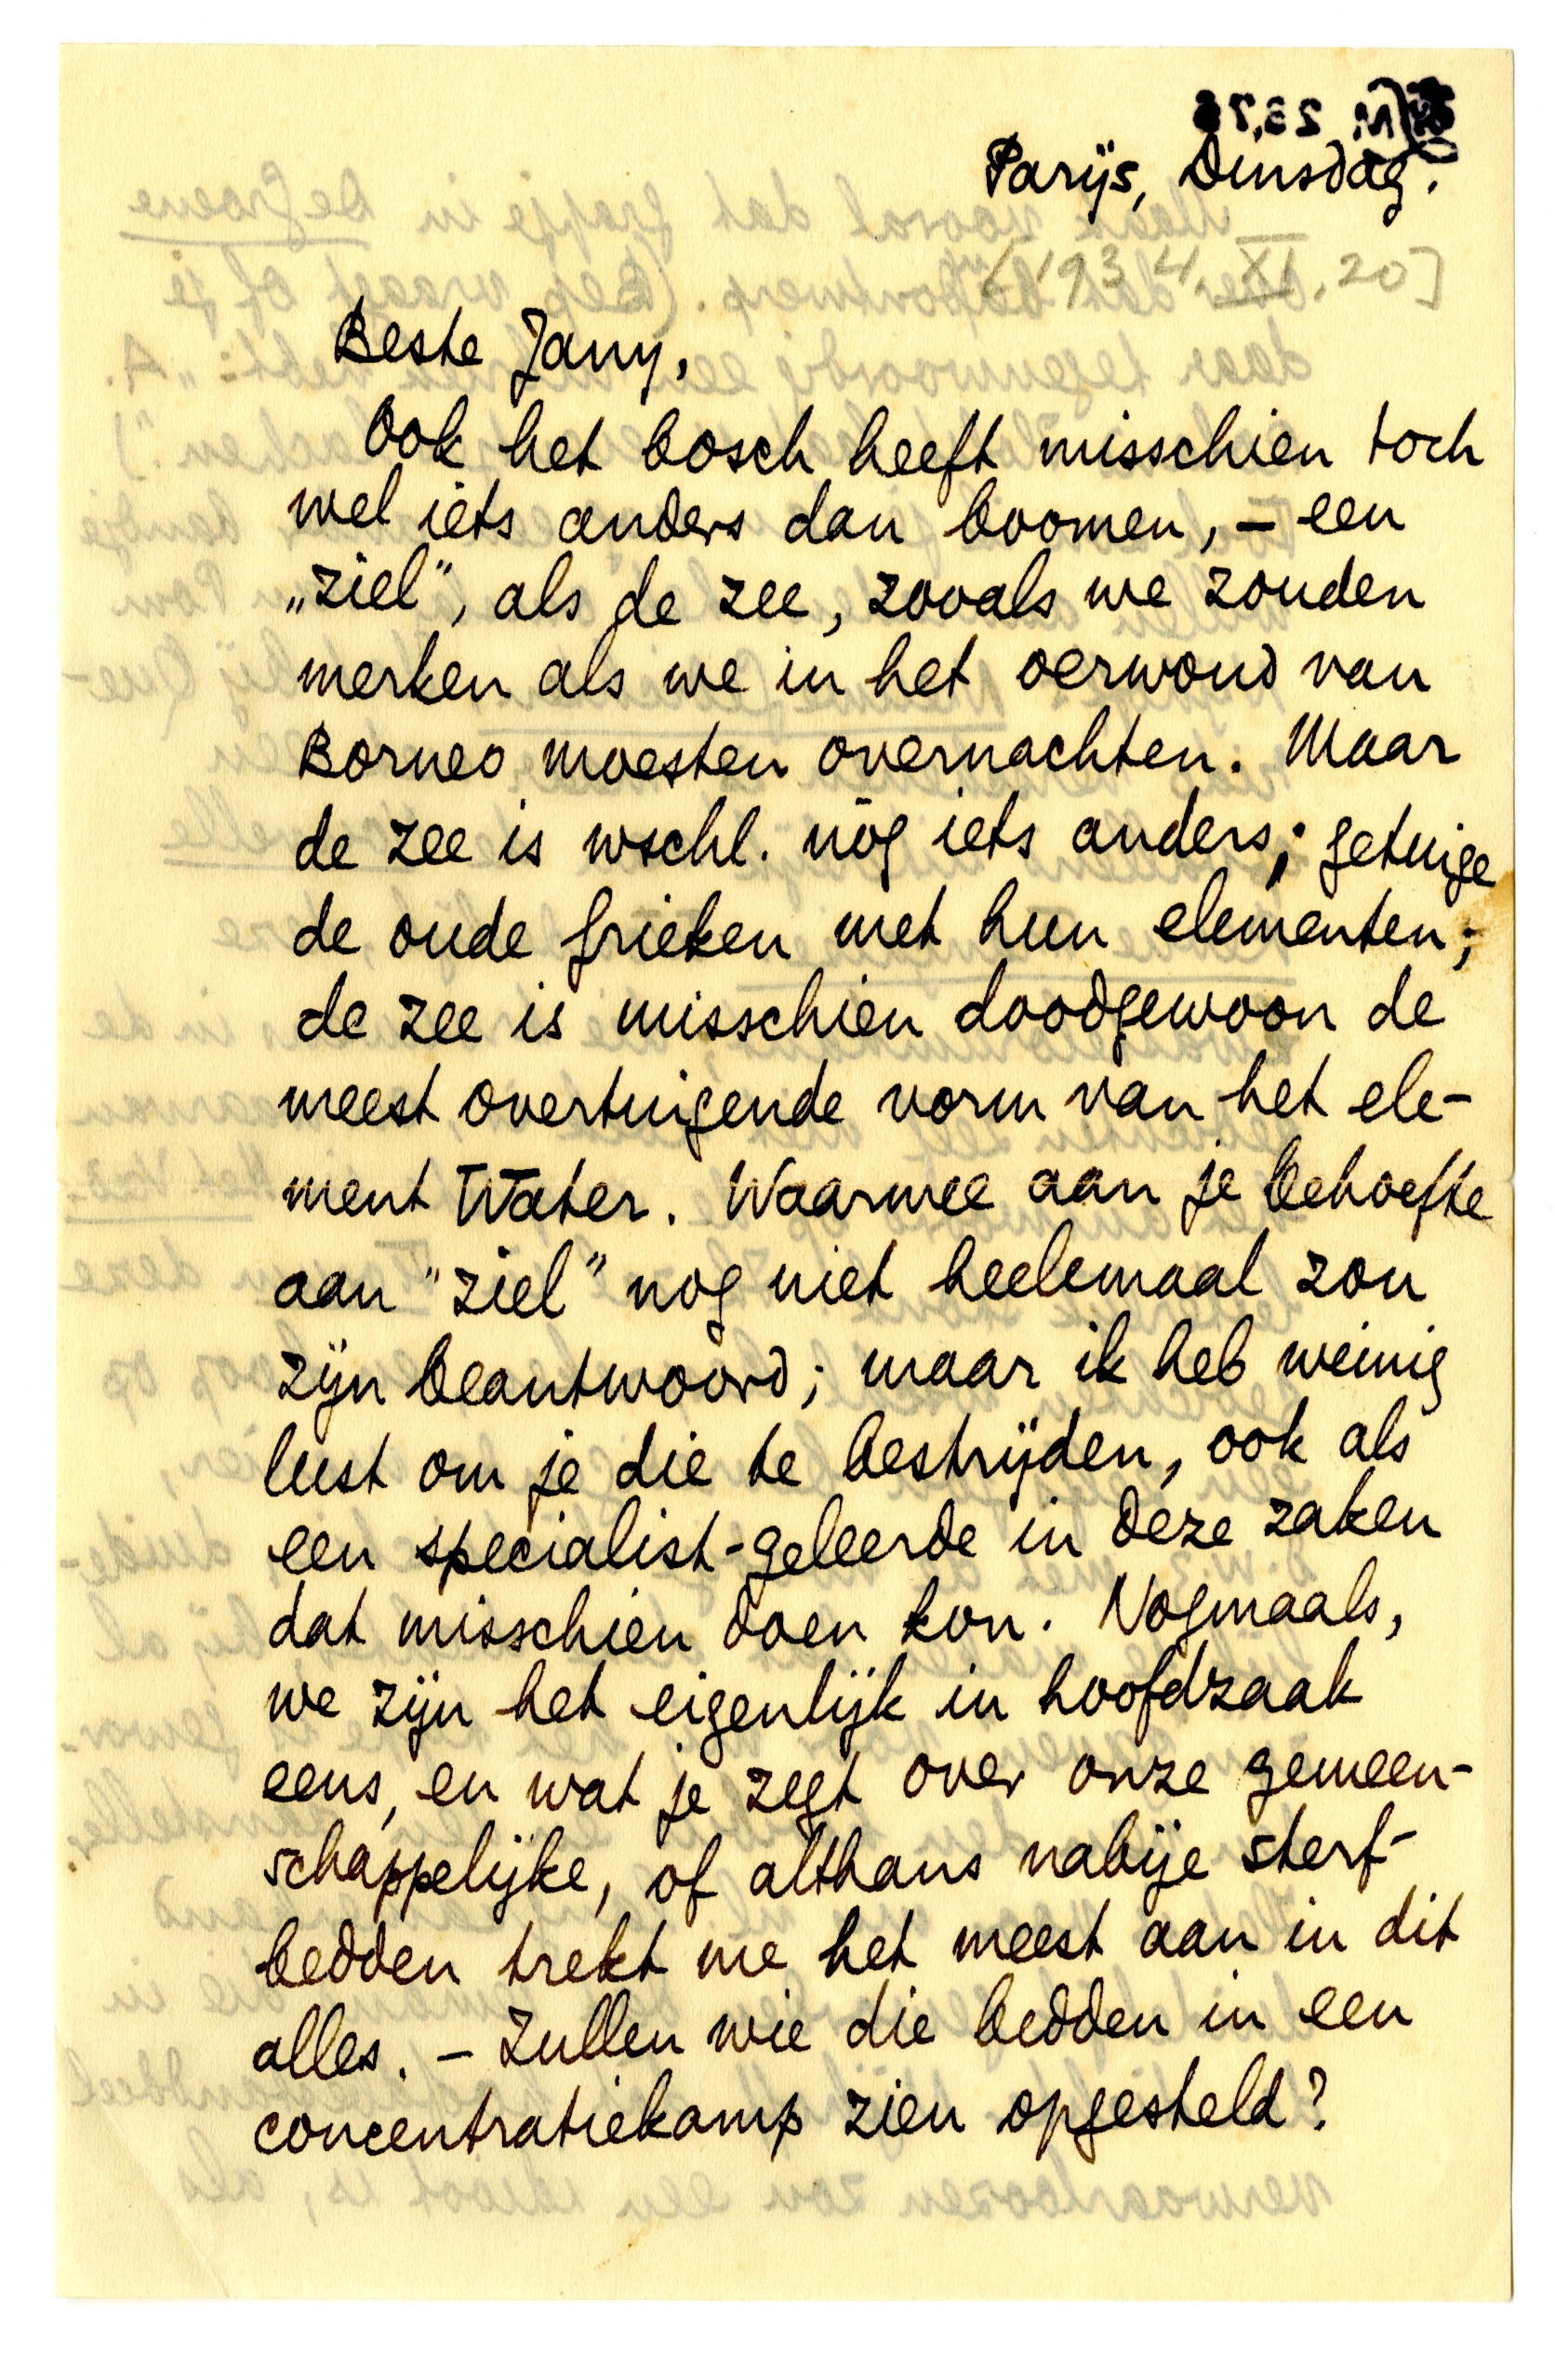 Parijs, Dinsdag.
[1934.XI.20]
Beste Jany,
Ook het bosch heeft misschien toch
wel iets anders dan boomen, – een
„ziel”, als de zee, zooals we zouden
merken als we in het oerwoud van
Borneo moesten overnachten. Maar
de zee is wschl. nòg iets anders; getuige
de oude Grieken met hun elementen;
de zee is misschien doodgewoon de
meest overtuigende vorm van het ele-
ment Water. Waarmee aan je behoefte
aan "ziel" nog niet heelemaal zou
zijn beantwoord; maar ik heb weinig
lust om je die te bestrijden, ook als
een specialist-geleerde in deze zaken
dat misschien doen kon. Nogmaals,
we zijn het eigenlijk in hoofdzaak
eens, en wat je zegt over onze gemeen-
schappelijke, of althans nabije sterf-
bedden trekt me het meest aan in dit
alles. – Zullen wie die bedden in een
concentratiekamp zien opgesteld?